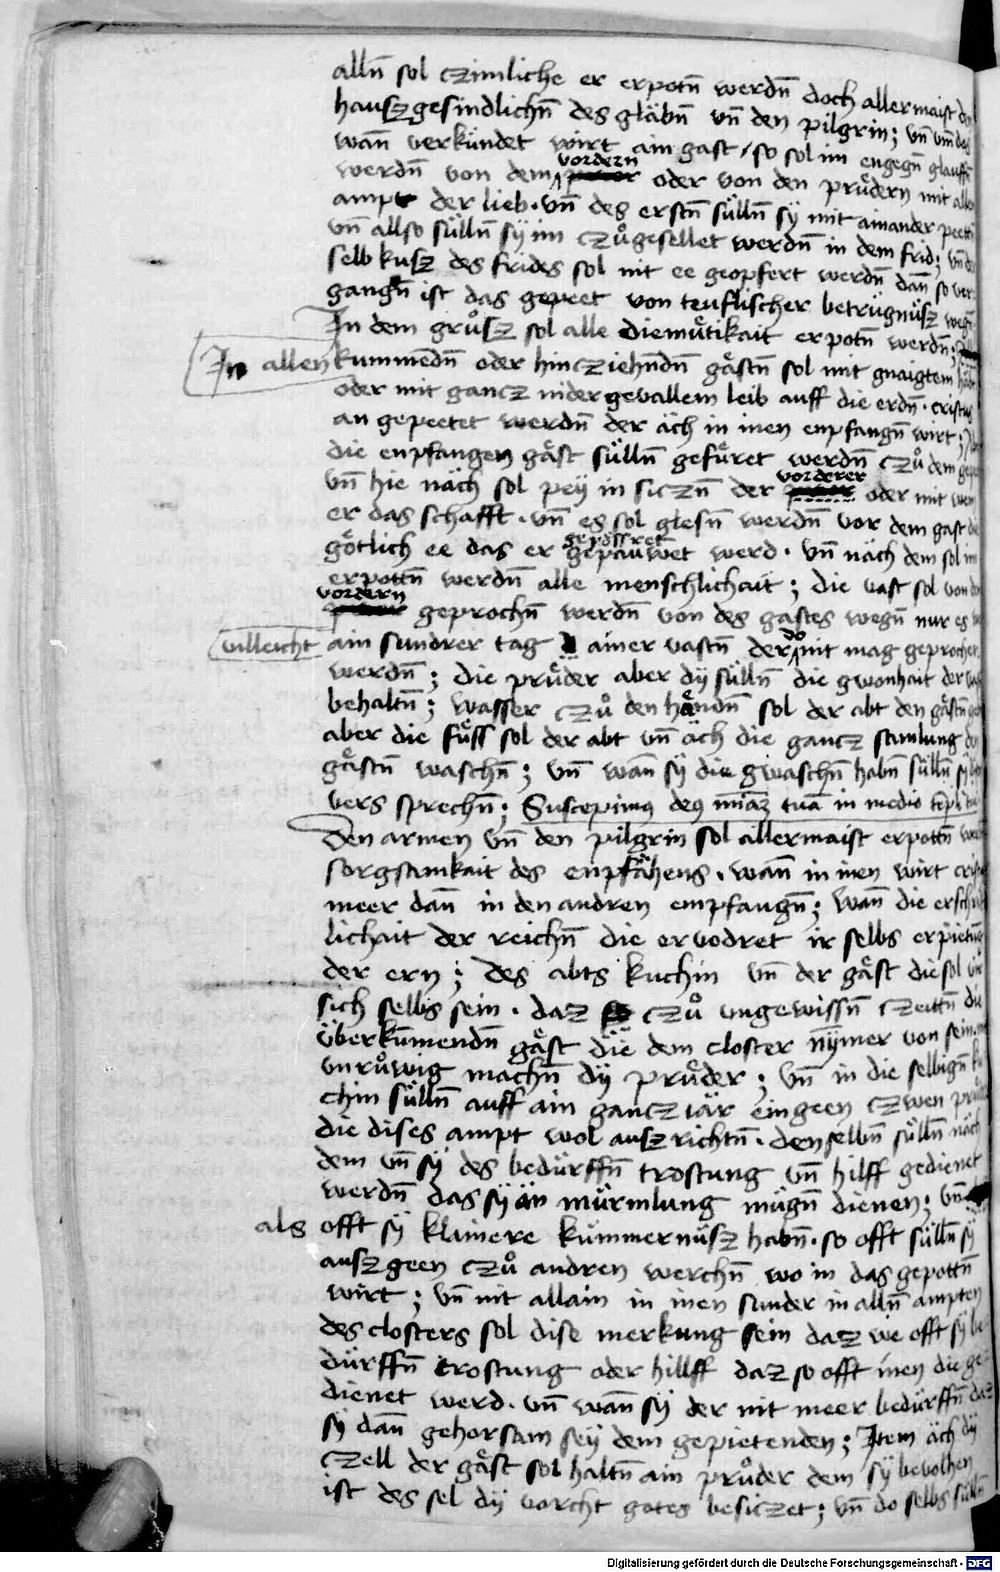 alln̄ sol czimliche er erpotn̄ werdn̄ doch allermaist
hauszgesindlichn̄ des gläbn̄ vn̄ den pilgrin; vn̄ vm̄ das
wan̄ verkündet wirt ain gast / so sol im engegn̄ glauffn̄
vordern
werdn̄ von dem oder von den prüdern mit
ampt der lieb · vn̄ des erstn̄ sülln̄ sÿ mit ainander peetn̄
vn̄ allso sülln̄ sÿ im czů gesellet werdn̄ in dem frid; vn̄
selb kusz des frides sol nit ee geopfert werdn̄ dan̄ so ver
gangn̄ ist das gepeet von teuflischer betrügnüsz wegn̄
In dem grůsz sol alle diemütikait erpotn̄ werdn̄;
In allen kummēdn̄ oder hincziehn̄dn̄ gästn̄ sol mit gnaigtem
oder mit gancz nidergevallem leib auff die erdn̄ · cristus
an gepeetet werdn̄ der äch in inen enpfangn̄ wirt;
die enpfangen gäst sülln̄ gefüret werdn̄ czů dem
vorderer
vn̄ hie näch sol peÿ in siczn̄ der oder mit wem
er das schafft · vn̄ es sol glesn̄ werdn̄ vor dem gast die
gepössret
götlich ee das er gepauwet werd · vn̄ näch dem sol im
erpottn̄ werdn̄ alle menschlichait; die vast sol von
vordern
geprochn̄ werdn̄ von des gastes wegn̄ nur es
villeicht ain sundrer tag ainer vastn̄ der do nit mag geprochen
werdn̄; die prüder aber dÿ sülln̄ die gwonhait der
behaltn̄; wasser czů den händn̄ sol der abt den gästn̄
aber die füss sol der abt vn̄ äch die gancz samlung
gästn̄ waschn̄; vn̄ wan̄ sÿ die gwaschn̄ habn̄ sülln̄
vers sprechn̄; Suscepimus deus m̄iaz tuā in medio
Den armen vn̄ den pilgrin sol allermaist erpottn̄
sorgsamkait des enpfähens · wan̄ in inen wirt
meer dan̄ in den andren empfangn̄; wan̄ die
lichait der reichn̄ die ervodret ir selbs
der ern; des abts kuchin vn̄ der gäst die sol
sich selbs sein · daz czů vngewissn̄ czeittn̄ die
überkūmendn̄ gäst die dem closter nȳmer von sein
vnrůwig machn̄ dÿ prüder; vn̄ in die selbign̄
chin sülln̄ auff ain gancz iär eingeen czwen
die dises ampt wol auszrichtn̄ · denselbn̄ sülln̄ näch
dem vn̄ sÿ des bedürffn̄ trostung vn̄ hilff gedienet
werdn̄ das sÿ än mürmlung mügn̄ dienen; vn̄
als offt sÿ klainere kümmernüsz habn̄ · so offt sülln̄ sÿ
auszgeen czů andren werchn̄ wo in das gepottn̄
wirt; vn̄ nit allain in inen sunder in alln̄ ampten
des closters sol dise merkung sein daz we offt sÿ be
dürffn̄ trostung oder hillff daz so offt inen die ge
dienet werd · vn̄ wan̄ sÿ der nit meer bedürffn̄ daz
sÿ dan̄ gehorsam seÿ dem gepietenden; Item äch dÿ
czell der gäst sol haltn̄ ain průder dem sÿ bevolhen
ist des sel dÿ vorcht gotes besiczet; vn̄ do selbs sülln̄
Digitalisierung gefördert durch die Deutsche Forschungsgemeinschaft - DFG